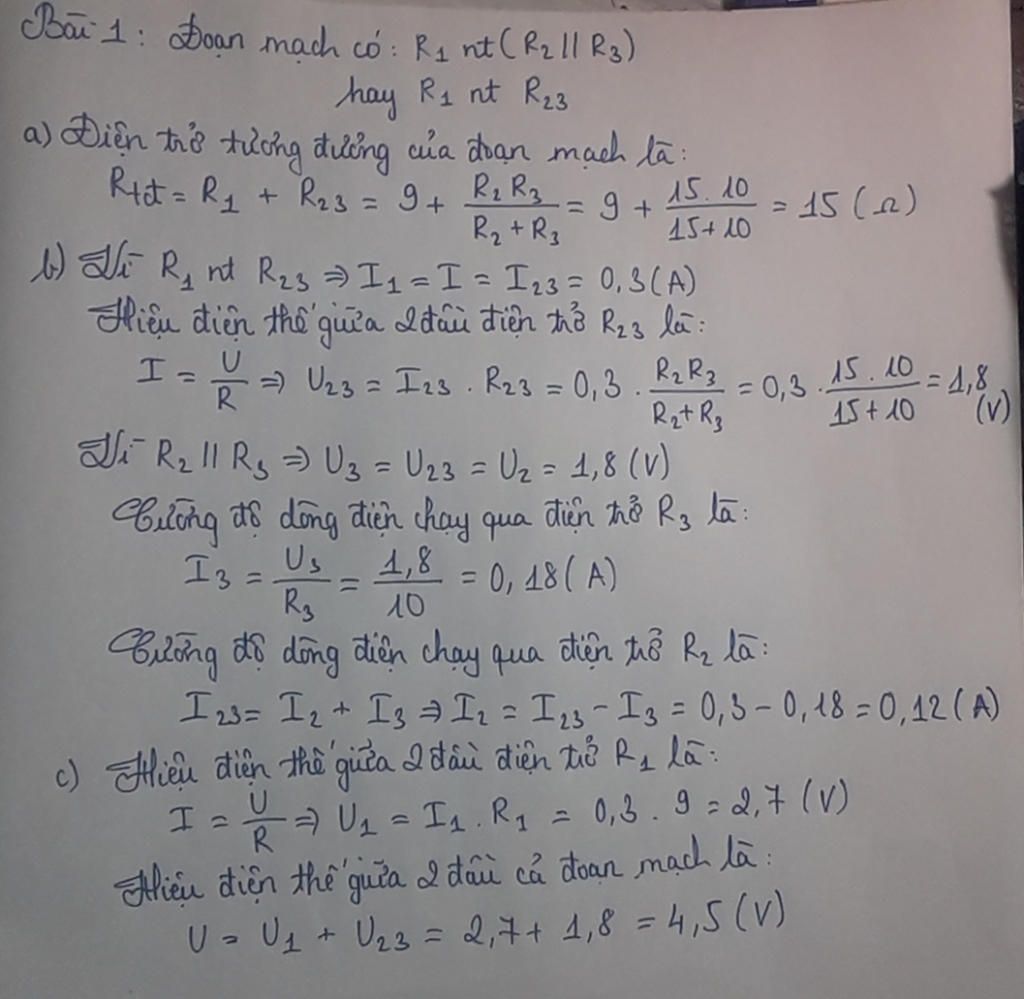 Bài 1: Đoạn mạch có: R₁ nt (R₂ // R₃)
hay R₁ nt R₂₃
a) Điện trở tương đương của đoạn mạch là:
Rtđ = R₁ + R₂₃ = 9 + (R₂ R₃)/(R₂ + R₃) = 9 + (15 . 10)/(15 + 10) = 15 (Ω)
b) Vì R₁ nt R₂₃ ⇒ I₁ = I = I₂₃ = 0,3 (A)
Hiệu điện thế giữa 2 đầu điện trở R₂₃ là:
I = U/R ⇒ U₂₃ = I₂₃ . R₂₃ = 0,3 . (R₂R₃)/(R₂ + R₃) = 0,3 . (15 . 10)/(15 + 10) = 1,8 (V)
Vì R₂ // R₃ ⇒ U₃ = U₂₃ = U₂ = 1,8 (V)
Cường độ dòng điện chạy qua điện trở R₃ là:
I₃ = U₃/R₃ = 1,8/10 = 0,18 (A)
Cường độ dòng điện chạy qua điện trở R₂ là:
I₂₃ = I₂ + I₃ ⇒ I₂ = I₂₃ - I₃ = 0,3 - 0,18 = 0,12 (A)
c) Hiệu điện thế giữa 2 đầu điện trở R₁ là:
I = U/R ⇒ U₁ = I₁ . R₁ = 0,3 . 9 = 2,7 (V)
Hiệu điện thế giữa 2 đầu cả đoạn mạch là:
U = U₁ + U₂₃ = 2,7 + 1,8 = 4,5 (V)